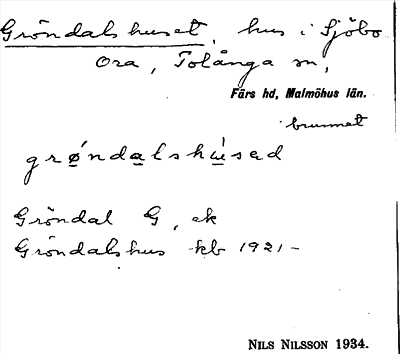 Gröndalshuset, hus i Sjöbo
Ora, Tolånga sn,
Färs hd, Malmöhus län.
brunnet
grǿndalshùsad
Gröndal G, ek
Gröndalshus kb 1921-
NILS NILSSON 1934.